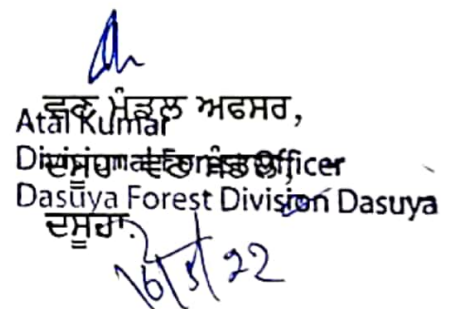 ਵਣ ਮੰਡਲ ਅਫਸਰ,
Atal Kumar
Divisional Forest Officer
ਦਸੂਹਾ ਵਣ ਮੰਡਲ,
Dasuya Forest Division Dasuya
ਦਸੂਹਾ.
16/5/22